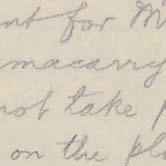 for M
macarry
not take
on the pl